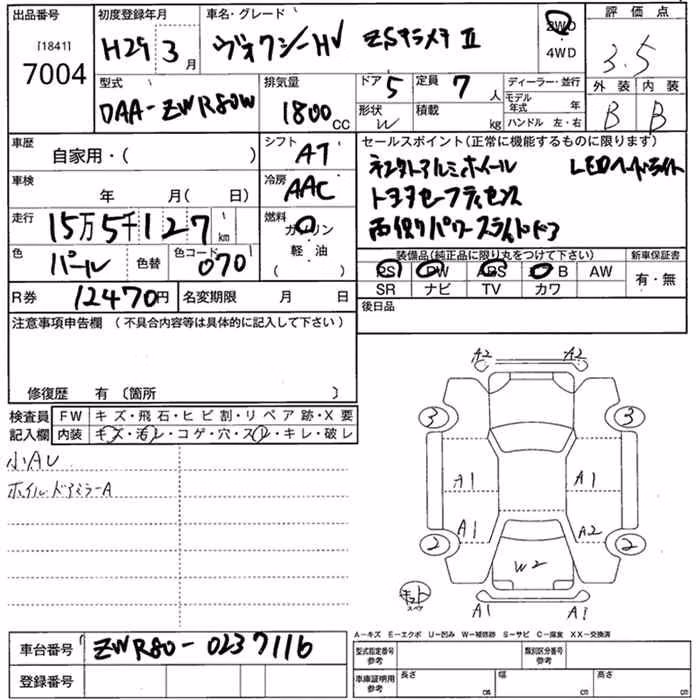 出品番号
[1841]
7004
初度登録年月
H29 3月
車名・グレード
ヴォクシーHV ZSキラメキⅡ
2WD
・
4WD
評価点
3.5
型式
DAA-ZWR80W
排気量
1800CC
ドア 5
形状 W
定員 7人
積載 kg
ディーラー・並行
モデル年式 年
ハンドル 左・右
外装 内装
B B
車歴
自家用・( )
シフト
AT
セールスポイント(正常に機能するものに限ります)
アルミホイール LEDヘッドライト
トヨタセーフティセンス
両側パワースライドドア
車検
年 月( 日)
冷房
AAC
走行
15万5千127km
燃料
ガソリン
軽・油
( )
色
パール
色替
色コード
070
装備品(純正品に限り丸をつけて下さい)
新車保証書
PS PW ABS B AW
有・無
SR ナビ TV カワ
R券 12470円
名変期限 月 日
後日品
注意事項申告欄 (不具合内容等は具体的に記入して下さい)
修復歴 有 〔箇所 〕
検査員記入欄
FW キズ・飛石・ヒビ割・リペア跡・X要
内装 キズ・汚レ・コゲ・穴・スレ・キレ・破レ
小AU
ホイル.ドアミラーA
A2 A2
3 3
A1 A1
A1 A2
2 2
W2
キット
スペア
A1 A1
A-キズ E-エクボ U-凹み W-補修跡 S-サビ C-腐食 XX-交換済
車台番号 ZWR80-0237116
登録番号
型式指定番号
参考
類別区分番号
参考
車庫証明用
参考
長さ cm 幅 cm 高さ cm